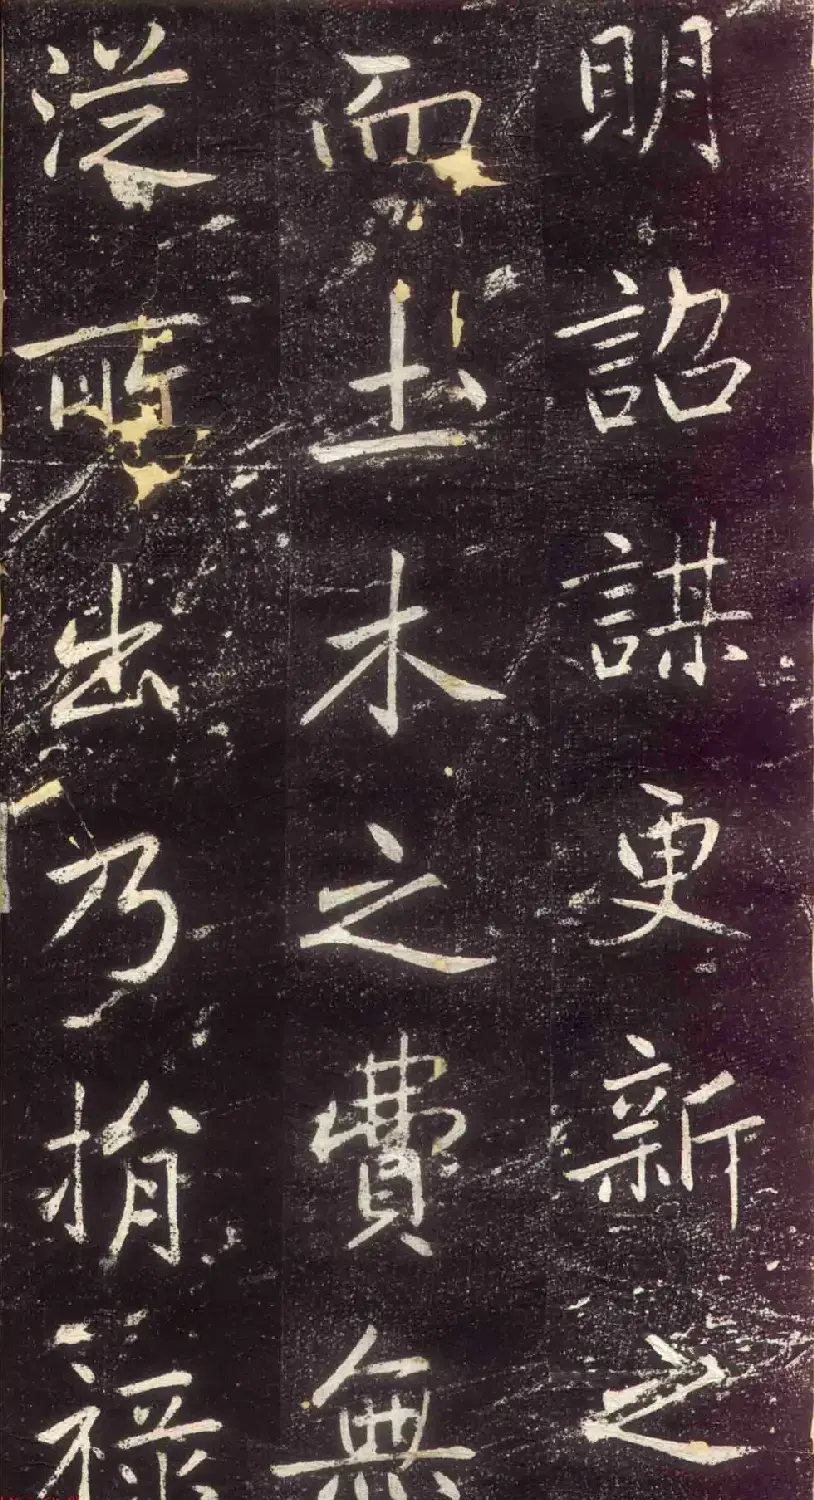 明詔謀更新之
而土木之費無
從所出乃捐禄